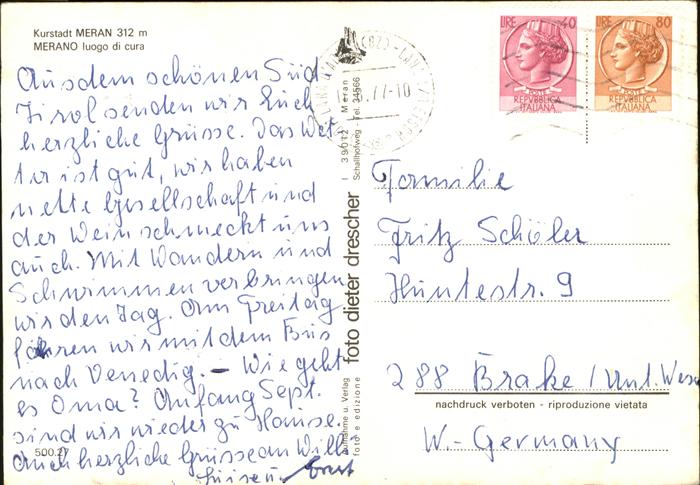 Kurstadt MERAN 312 m
MERANO luogo di cura
Aus dem schönen Süd
Tirol senden wir Euch
herzliche Grüsse. Das Wet
ter ist gut, wir haben
nette Gesellschaft und
der Wein schmeckt uns
auch. Mit Wandern und
Schwimmen verbringen
wir den Tag. Am Freitag
fahren wir mit dem Bus
nach Venedig. – Wie geht
es Oma? Anfang Sept.
sind wir wieder zu Hause.
Auch herzliche Grüsse an Willi
Luise u. Ernst
500.27
foto dieter drescher
I 39012 Meran
Schallhofweg - Tel. 34566
Aufnahme u. Verlag
foto e edizione
77-10
LIRE 40
POSTE
REPVBBLICA
ITALIANA
LIRE 80
POSTE
REPVBBLICA
ITALIANA
Familie
Fritz Schöler
Huntestr. 9
288 Brake / Unt. Weser
nachdruck verboten - riproduzione vietata
W.-Germany